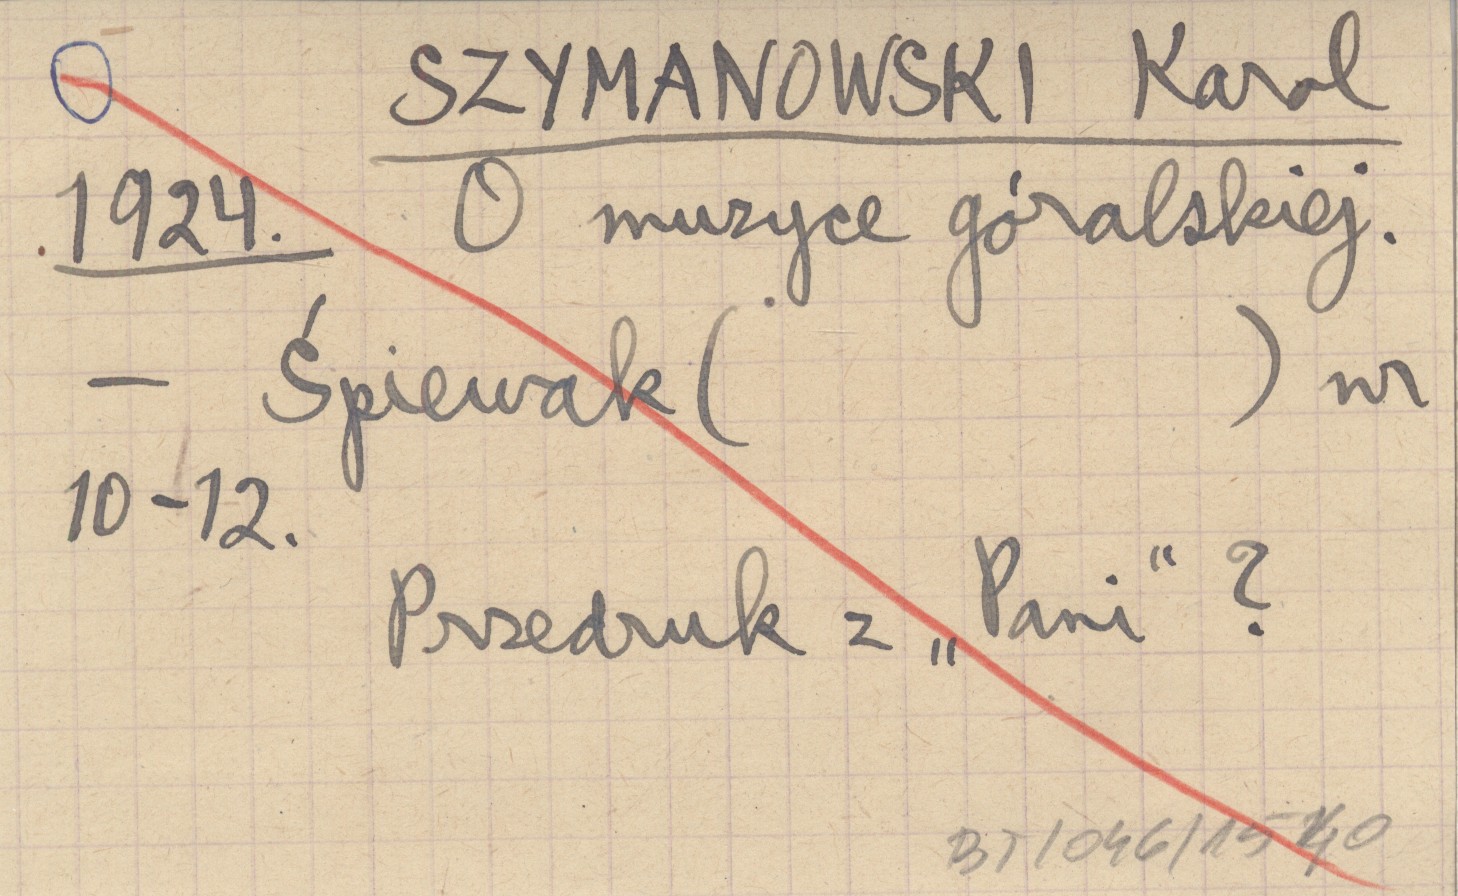 SZYMANOWSKI Karol
1924. O muzyce góralskiej.
— Śpiewak ( ) nr
10-12.
Przedruk z „Pani“ ?